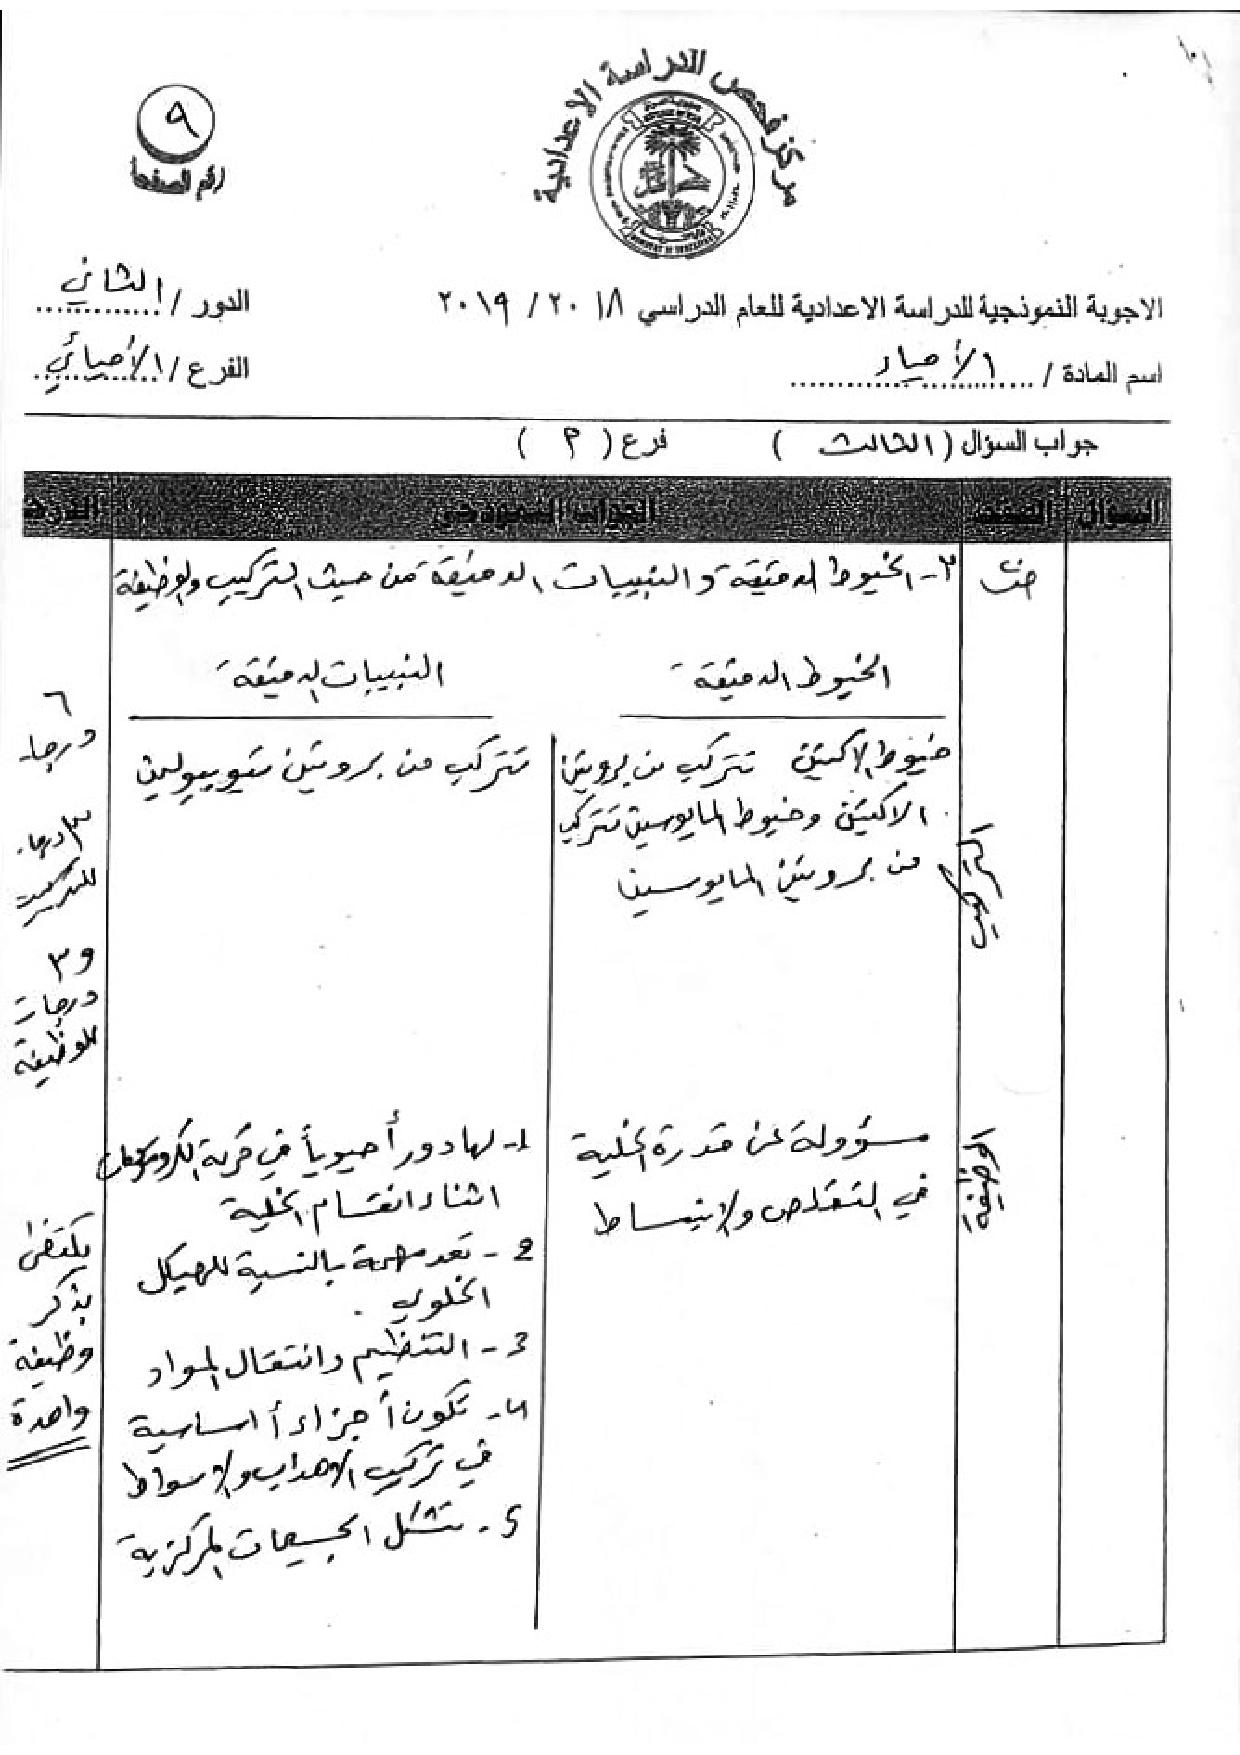 مركز فحص الدراسة الاعدادية
٩
رقم الصفحة
الاجوبة النموذجية للدراسة الاعدادية للعام الدراسي ٢٠١٨ / ٢٠١٩
الدور / الثاني
اسم المادة / الأحياء
الفرع / الأحيائي
جواب السؤال ( الثالث ) فرع ( ٢ )
السؤال
الصفحة
الجواب النموذجي
الدرجة
٣- الخيوط الدقيقة والنبيبات الدقيقة من حيث التركيب والوظيفة
الخيوط الدقيقة
النبيبات الدقيقة
التركيب
خيوط الاكتين تتركب من بروتين
الاكتين وخيوط المايوسين تتركب
من بروتين المايوسين
تتركب من بروتين تيوبيولين
الوظيفة
مسؤولة عن قدرة الخلية
في التقلص والانبساط
1- لها دوراً حيوياً في حركة الكروموسومات
اثناء انقسام الخلية
2- تعد مهمة بالنسبة للهيكل
الخلوي .
3- التنظيم وانتقال المواد
4- تكون أجزاءاً اساسية
في تركيب الاهداب والاسواط
5- تشكل الجسيمات المركزية
٦
درجات
٣ درجات
للتركيب
و٣
درجات
للوظيفة
يكتفى
بذكر
وظيفة
واحدة